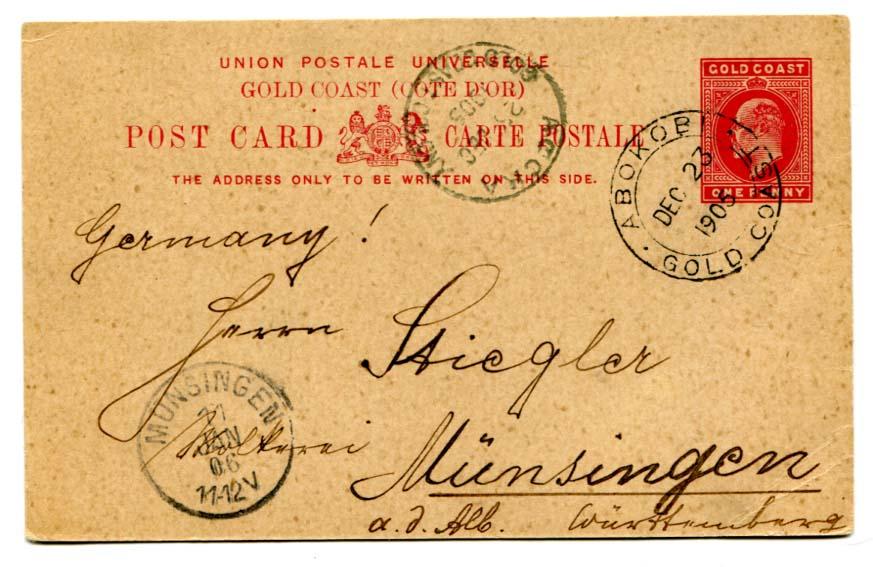 UNION POSTALE UNIVERSELLE
GOLD COAST (CÔTE D'OR)
POST CARD CARTE POSTALE
THE ADDRESS ONLY TO BE WRITTEN ON THIS SIDE.
GOLD COAST
ONE PENNY
ACCRA
ABOKOBI
DEC 23
1905
GOLD COAST
Germany!
Herrn Stiegler
MÜNSINGEN
JAN
06
11-12V
Molkerei
Münsingen
a. d. Alb. Württemberg